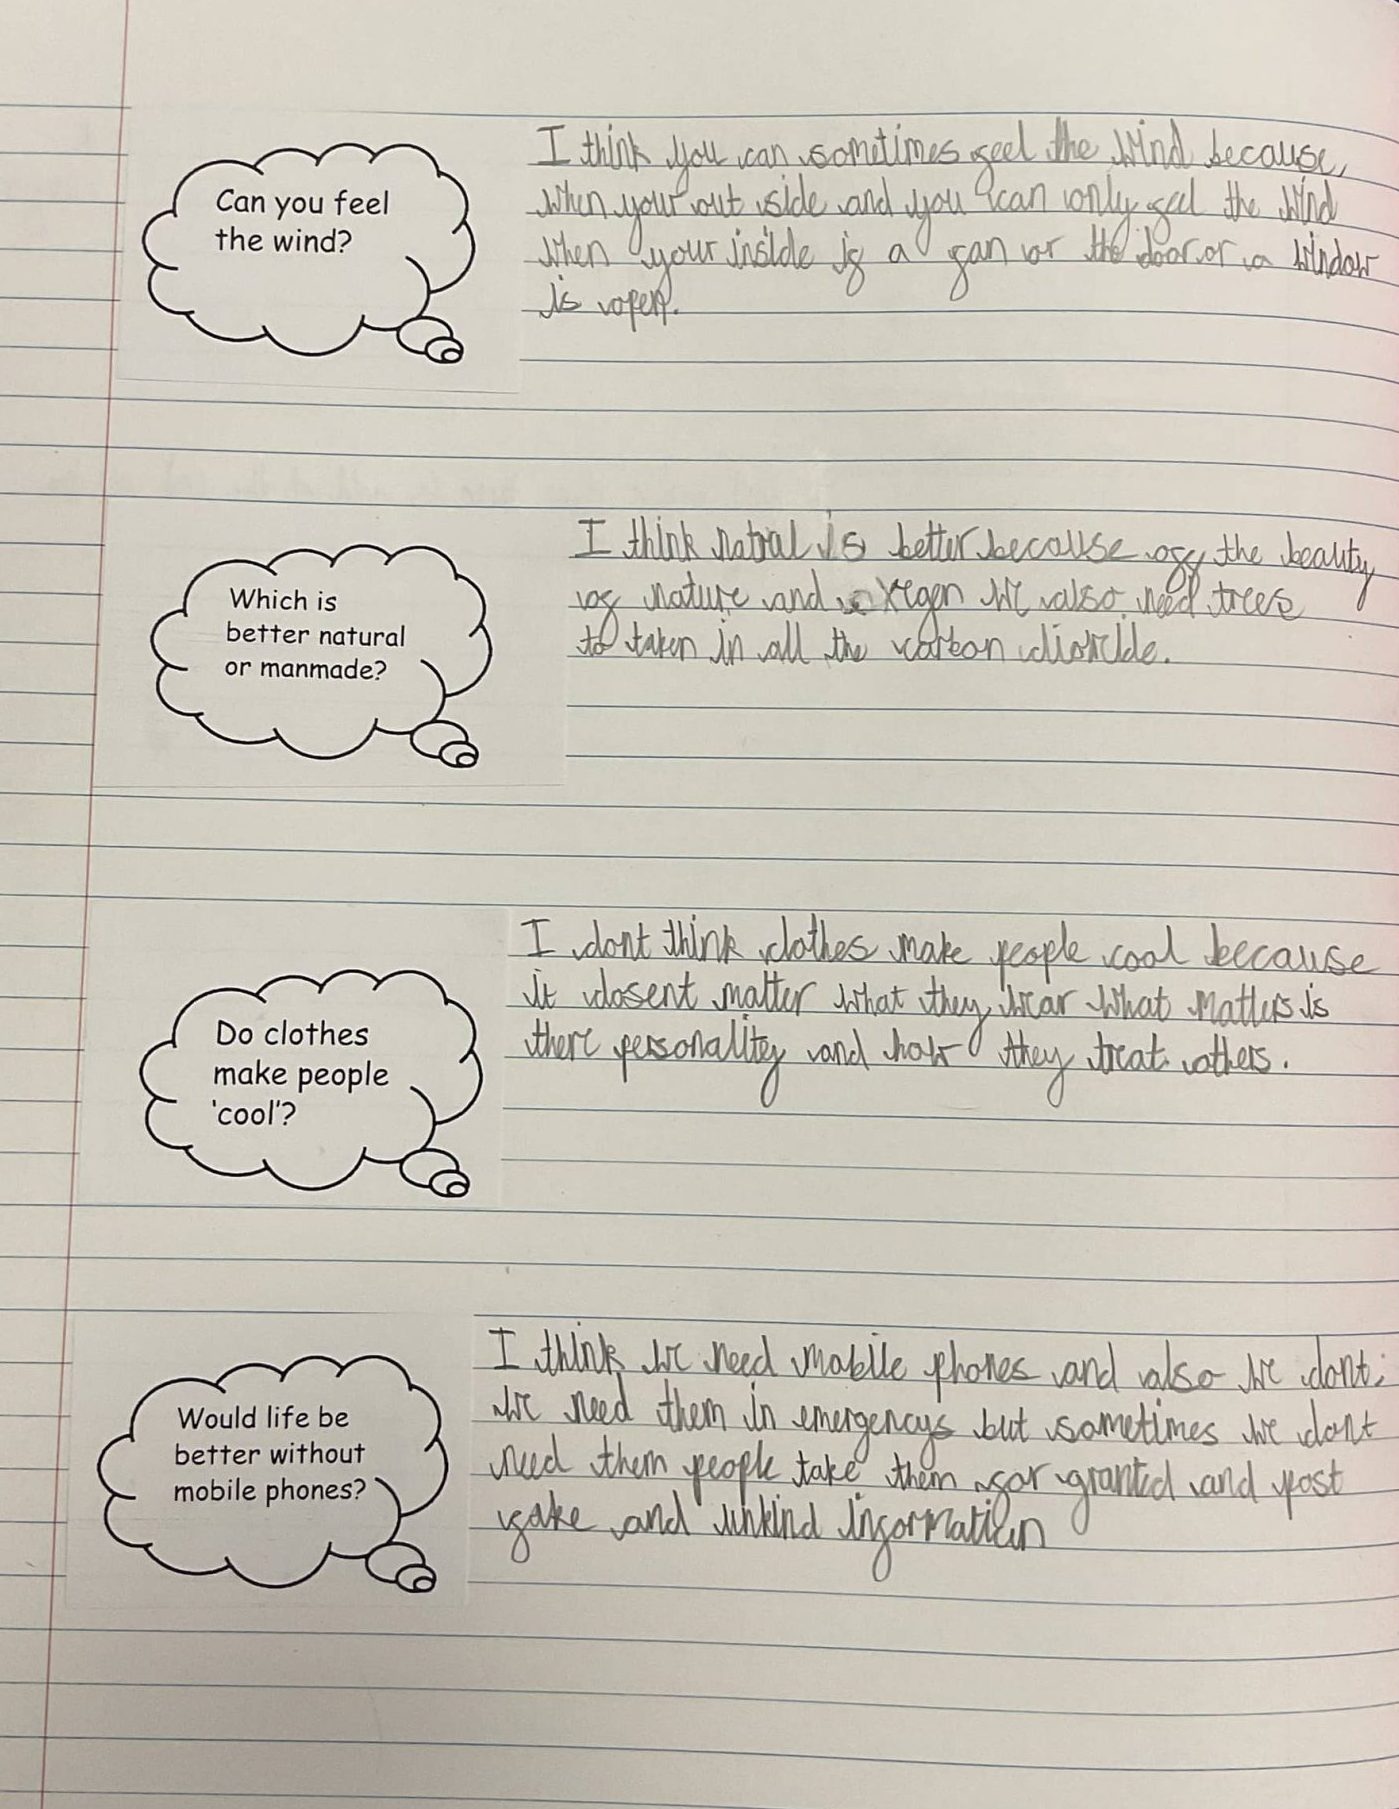 Can you feel
the wind?
I think you can sometimes feel the wind because,
when your out side and you can only feel the wind
when your inside if a fan or the door or a window
is open.
Which is
better natural
or manmade?
I think natral is better because off the beauty
of nature and oxegen we also need trees
to taken in all the carbon dioxide.
Do clothes
make people
'cool'?
I dont think clothes make people cool because
it dosent matter what they wear what matters is
there personality and how they treat others.
Would life be
better without
mobile phones?
I think we need mobile phones and also we dont.
we need them in emergencys but sometimes we dont
need them people take them for granted and post
fake and unkind information